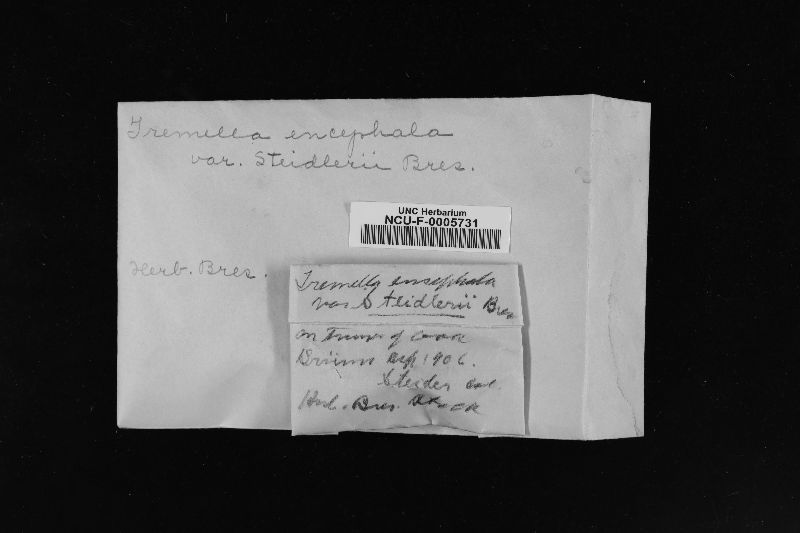 Tremella encephala
var. Steidlerii Bres.
UNC Herbarium
NCU-F-0005731
Herb. Bres.
Tremella encephala
var Steidlerii Bres
on of
Brünn 1906.
col.
Herb. Bres.